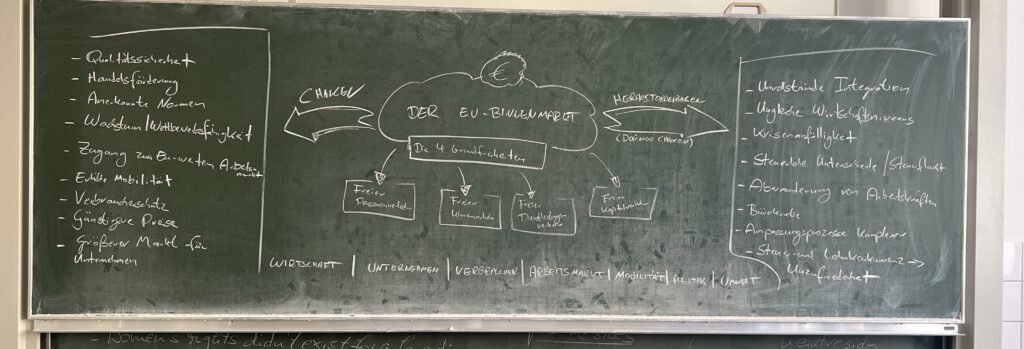 - Qualitätssicherheit
- Handelsförderung
- Anerkannte Normen
- Wachstum/Wettbewerbsfähigkeit
- Zugang zum Eu-weiten Arbeits
markt
- Erhöte Mobilität
- Verbraucherschutz
- Günstigere Preise
- Größerer Markt für
Unternehmen
CHANCEN
€
DER EU-BINNENMARKT
Die 4 Grundfreiheiten
Freier
Personenverkehr
Freier
Warenverkehr
Freier
Dienstleistungs
verkehr
Freier
Kapitalverkehr
HERAUSFORDERUNGEN
WIRTSCHAFT | UNTERNEHMEN | VERBRAUCHER | ARBEITSMARKT | MOBILITÄT | POLITIK | UMWELT
- Unvollstände Integration
- Ungleiche Wirtschaftsniveaus
- Krisenanfälligkeit
- Steuerliche Unterschiede/Steuerflucht
- Abwanderung von Arbeitskräften
- Bürokratie
- Anpassungsprozesse Komplexer
- Steuer- und Lohnkonkurrenz →
Unzufriedenheit
- Women's rights didn't exist for a
negative sides